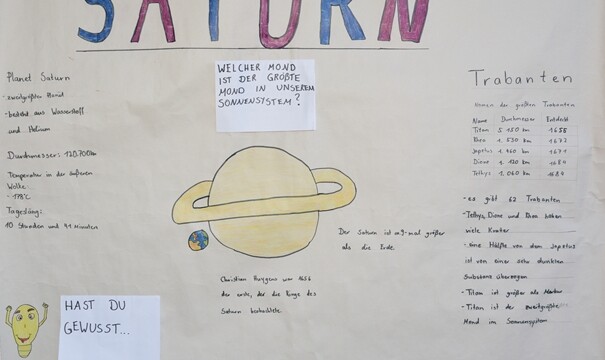 SATURN
Planet Saturn
- zweitgrößter Planet
- besteht aus Wasserstoff
und Helium
Durchmesser: 120.700km
Temperatur in der äußeren
Wolke
- -178°C
Tageslänge:
10 Stunden und 41 Minuten
WELCHER MOND
IST DER GRÖßTE
MOND IN UNSEREM
SONNENSYSTEM?
Der Saturn ist ca 9-mal größer
als die Erde.
Christian Huygens war 1656
der erste, der die Ringe des
Saturn beobachtete.
HAST DU
GEWUSST...
Trabanten
Namen der größten Trabanten
Name Durchmesser Entdeckt
Titan 5 150 km 1655
Rhea 1 530 km 1672
Japetus 1 460 km 1671
Dione 1 120 km 1684
Tethys 1 060 km 1684
- es gibt 62 Trabanten
- Tethys, Dione und Rhea haben
viele Krater
- eine Hälfte von dem Japetus
ist von einer sehr dunklen
Substanz überzogen
- Titan ist größer als Merkur
- Titan ist der zweitgrößte
Mond im Sonnensystem